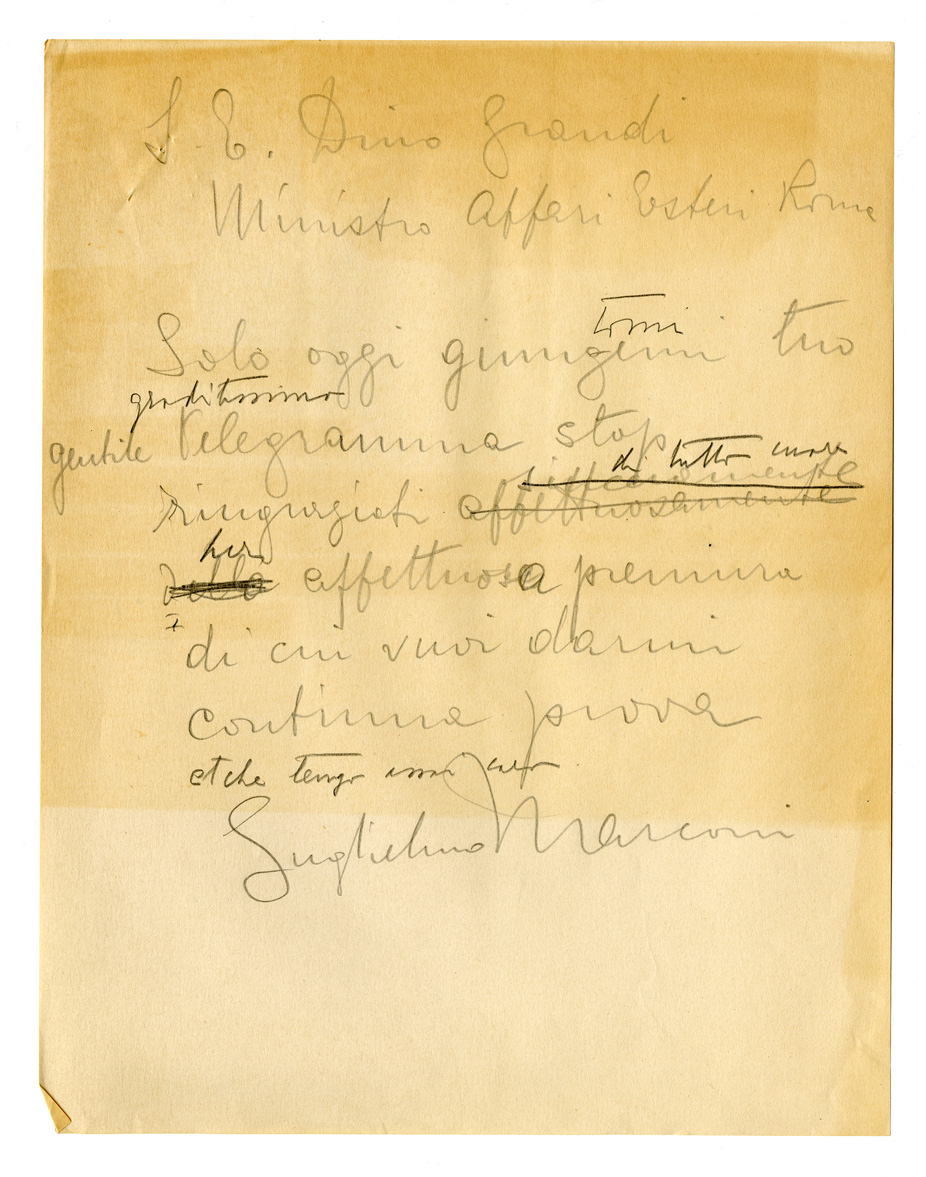 S. E. Dino Grandi
Ministro Affari Esteri Roma
tomi
Solo oggi giungemi tuo
graditissimo
gentile Telegramma stop
di tutto cuore
ringraziati affettuosamente
tua
della affettuosa premura
di cui vuoi darmi
continua prova
et che tengo assai cara
Guglielmo Marconi